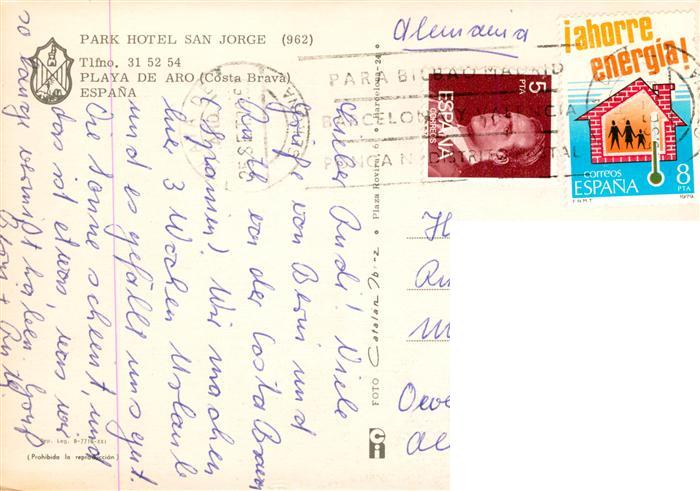 PARK HOTEL SAN JORGE (962)
Tlfno. 31 52 54
PLAYA DE ARO (Costa Brava)
ESPAÑA
Alemania
¡ahorre
energía!
correos
ESPAÑA
8
PTA
FNMT
1979
5
PTA
ESPAÑA
CORREOS
PARA BILBAO MADRID
BARCELONA
Lieber Rudi! Viele
Grüße von Beni und
Ruth von der Costa Brava
(Spanien). Wir machen
hier 3 Wochen Urlaub
und es gefällt uns gut.
Die Sonne scheint, und
das ist etwas, was wir
so lange vermißt haben. Gruß
FOTO Catalan Ibarz - Plaza Rovira, 6 - Barcelona-24
ci
Dep. Leg. B-7716-XXI
(Prohibida la reproducción)